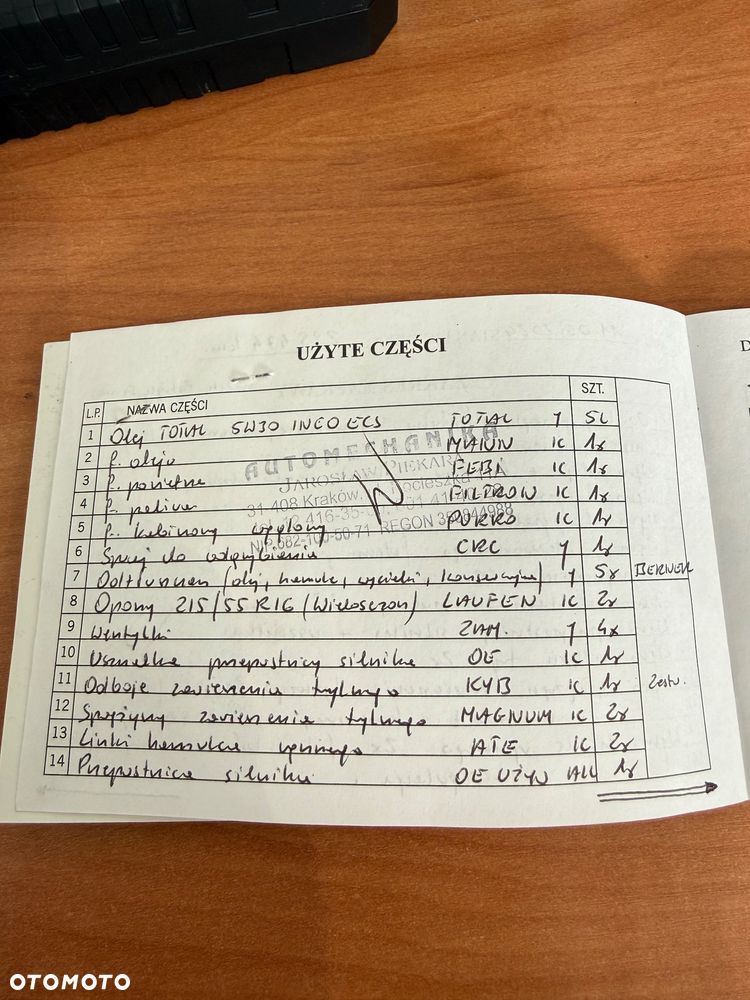 UŻYTE CZĘŚCI
L.P. NAZWA CZĘŚCI SZT.
1 Olej TOTAL 5W30 INEO ECS TOTAL Y 5L
2 f. oleju MANN IC 1x
3 f. powietrza FEBI IC 1x
4 f. paliwa FILTRON IC 1x
5 f. kabinowy węglowy PURRO IC 1x
6 Sprej do odgrzybiania CRC Y 1x
7 Odtłuszcz (olej, hamulc, wycieki, konserwacyjne) Y 5x BERNER
8 Opony 215/55R16 (Wielosezon) LAUFEN IC 2x
9 Wentylki ZAM. Y 4x
10 Uszczelka przepustnicy silnika OE IC 1x
11 Odboje zawieszenia tylnego KYB IC 1x Zestw.
12 Sprężyny zawieszenia tylnego MAGNUM IC 2x
13 Linki hamulca ręcznego ATE IC 2x
14 Przepustnica silnika OE UŻYW ALL 1x
AUTOMECHANIKA
JAROSŁAW PIEKARA
31-408 Kraków
OTOMOTO